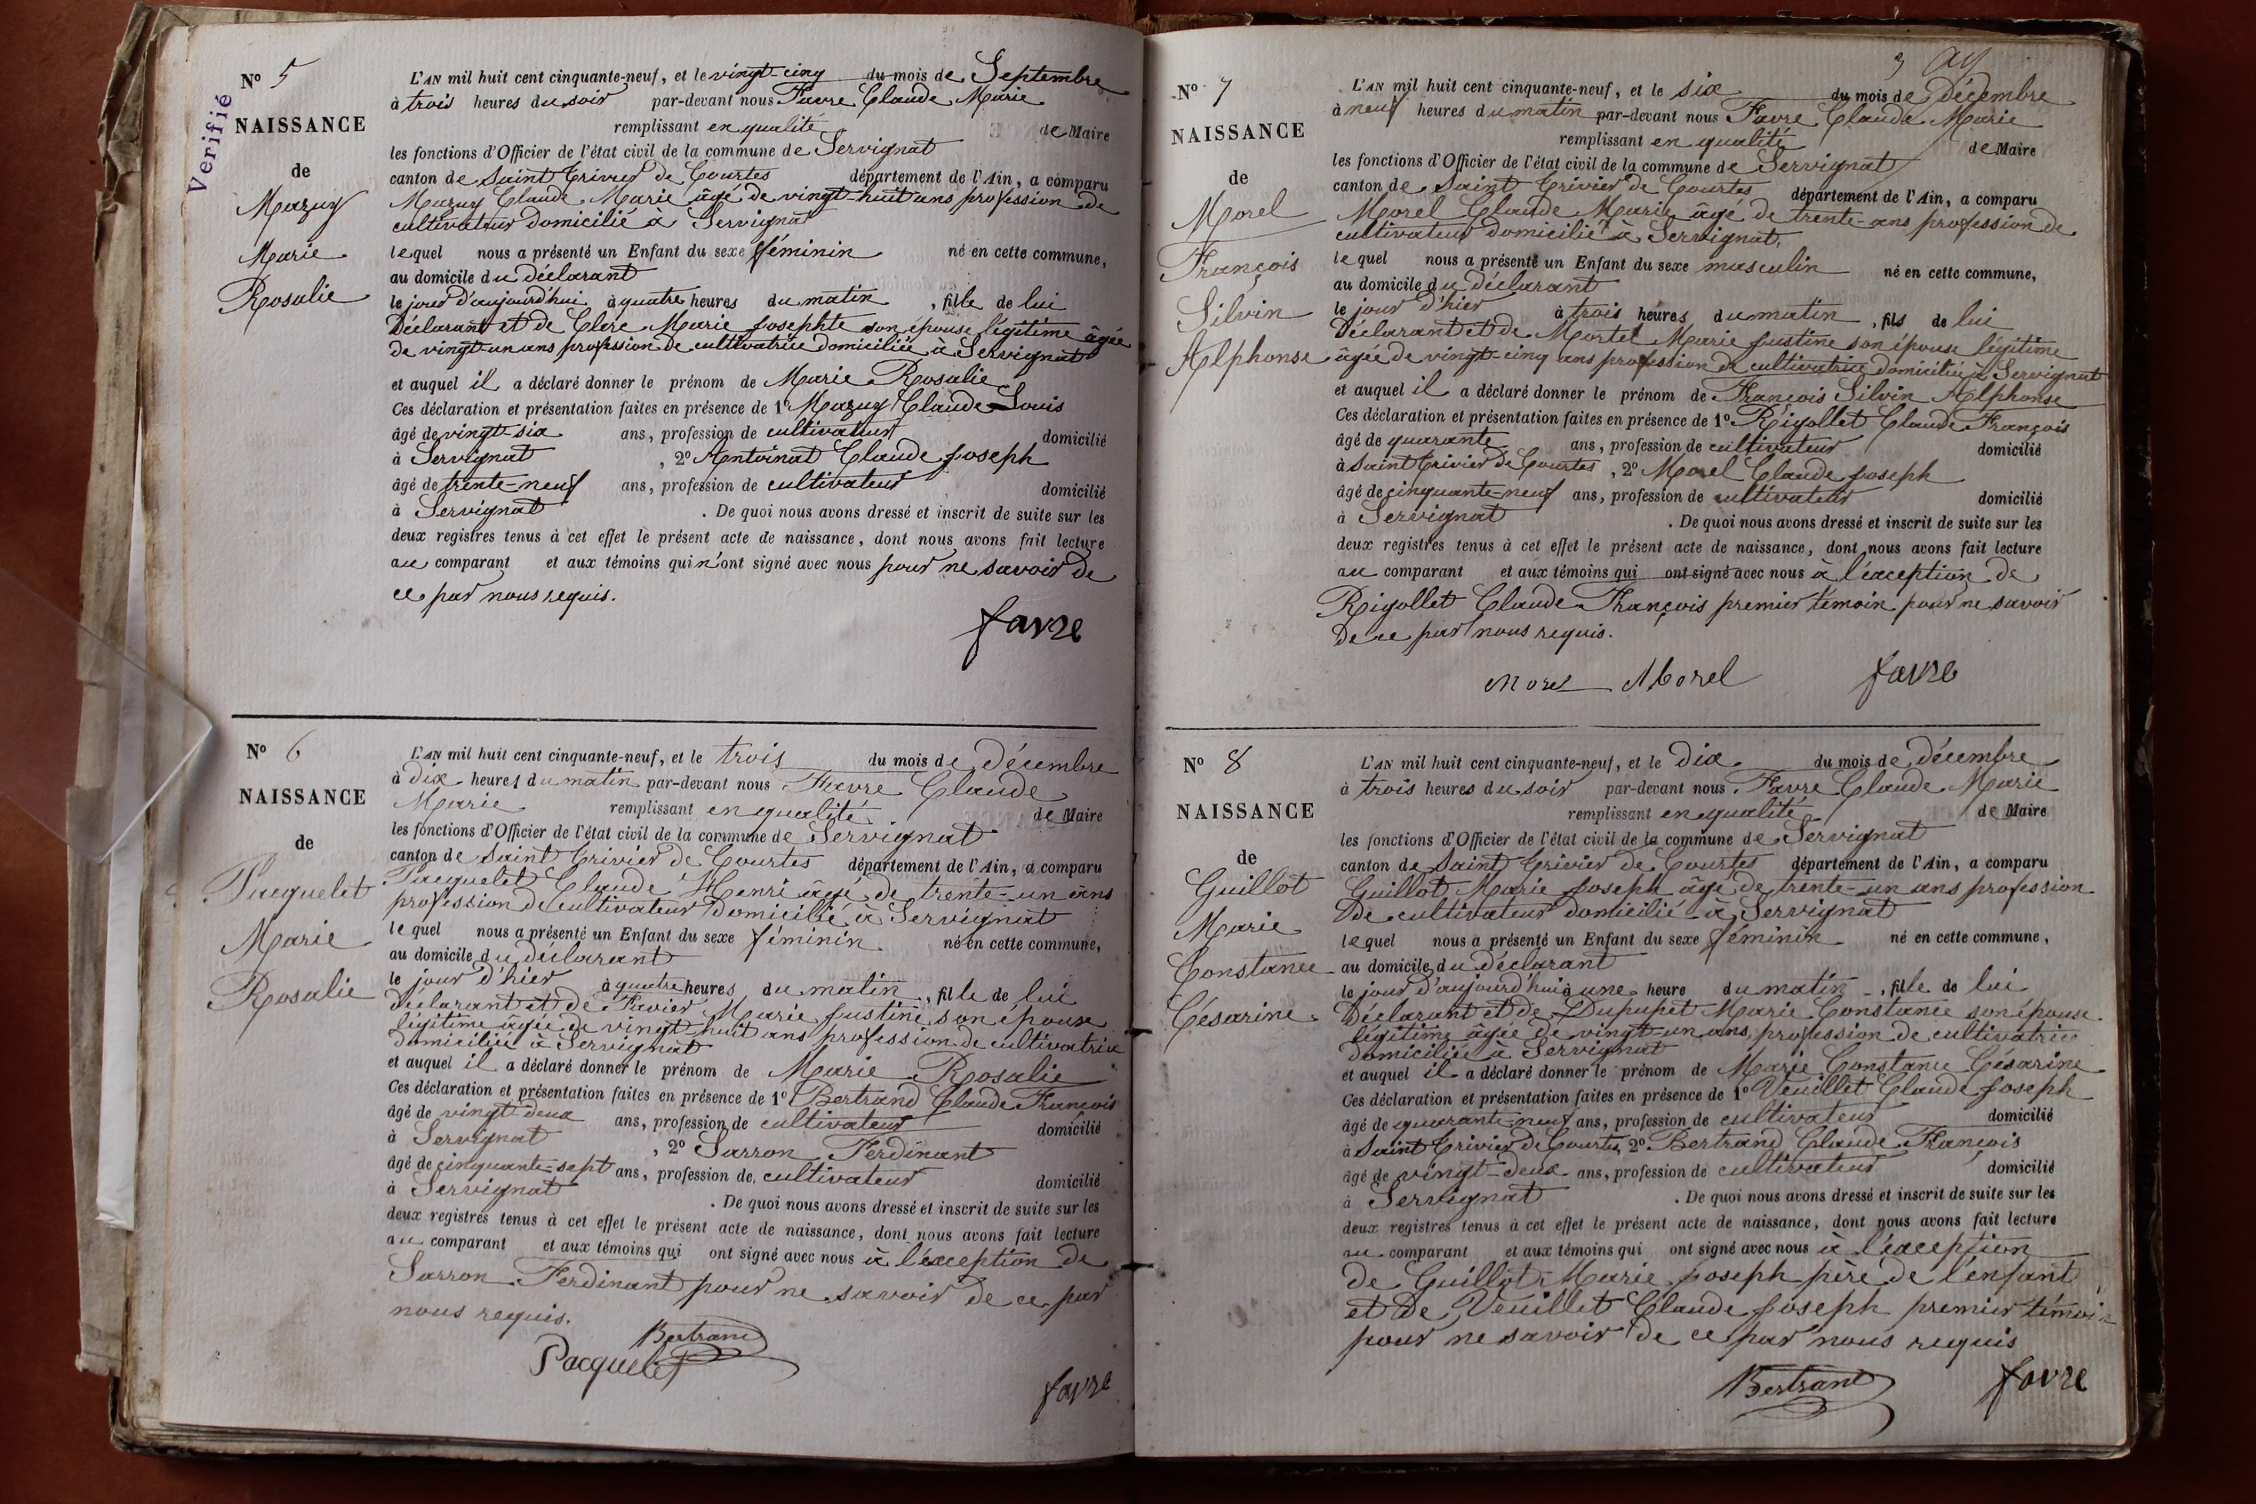 Verifié
Nº 5
NAISSANCE
de
Mazuy
Marie
Rosalie
L'AN mil huit cent cinquante-neuf, et le vingt-cinq du mois de Septembre
à trois heures du soir par-devant nous Favre Claude Marie
remplissant en qualité de Maire
les fonctions d'Officier de l'état civil de la commune de Servignat
canton de Saint Trivier de Courtes département de l'Ain, a comparu
Mazuy Claude Marie âgé de vingt-huit ans profession de
cultivateur domicilié à Servignat
lequel nous a présenté un Enfant du sexe féminin né en cette commune,
au domicile du déclarant
le jour d'aujourd'hui à quatre heures du matin, fille de lui
Déclarant et de Clere Marie Josephte son épouse légitime âgée
de vingt-un ans profession de cultivatrice domiciliée à Servignat
et auquel il a déclaré donner le prénom de Marie Rosalie
Ces déclaration et présentation faites en présence de 1º Mazuy Claude Louis
âgé de vingt-six ans, profession de cultivateur domicilié
à Servignat, 2º Antoinat Claude Joseph
âgé de trente-neuf ans, profession de cultivateur domicilié
à Servignat. De quoi nous avons dressé et inscrit de suite sur les
deux registres tenus à cet effet le présent acte de naissance, dont nous avons fait lecture
au comparant et aux témoins qui n'ont signé avec nous pour ne savoir de
ce par nous requis.
favre
Nº 6
NAISSANCE
de
Pacquelet
Marie
Rosalie
L'AN mil huit cent cinquante-neuf, et le trois du mois de Décembre
à dix heures du matin par-devant nous Favre Claude
Marie remplissant en qualité de Maire
les fonctions d'Officier de l'état civil de la commune de Servignat
canton de Saint Trivier de Courtes département de l'Ain, a comparu
Pacquelet Claude Henri âgé de trente-un ans
profession de cultivateur domicilié à Servignat
lequel nous a présenté un Enfant du sexe féminin né en cette commune,
au domicile du déclarant
le jour d'hier à quatre heures du matin, fille de lui
déclarant et de Favier Marie Justine son épouse
légitime âgée de vingt-huit ans profession de cultivatrice
domiciliée à Servignat
et auquel il a déclaré donner le prénom de Marie Rosalie
Ces déclaration et présentation faites en présence de 1º Bertrand Claude François
âgé de vingt-deux ans, profession de cultivateur domicilié
à Servignat, 2º Sarron Ferdinant
âgé de cinquante-sept ans, profession de cultivateur domicilié
à Servignat. De quoi nous avons dressé et inscrit de suite sur les
deux registres tenus à cet effet le présent acte de naissance, dont nous avons fait lecture
au comparant et aux témoins qui ont signé avec nous à l'éxception de
Sarron Ferdinant pour ne savoir de ce par
nous requis.
Bertrand
Pacquelet
favre
3
Nº 7
NAISSANCE
de
Morel
François
Silvin
Alphonse
L'AN mil huit cent cinquante-neuf, et le six du mois de Décembre
à neuf heures du matin par-devant nous Favre Claude Marie
remplissant en qualité de Maire
les fonctions d'Officier de l'état civil de la commune de Servignat
canton de Saint Trivier de Courtes département de l'Ain, a comparu
Morel Claude Marie âgé de trente-ans profession de
cultivateur domicilié à Servignat,
lequel nous a présenté un Enfant du sexe masculin né en cette commune,
au domicile du déclarant
le jour d'hier à trois heures du matin, fils de lui
Déclarant et de Mortel Marie Justine son épouse légitime
âgée de vingt-cinq ans profession de cultivatrice domiciliée à Servignat
et auquel il a déclaré donner le prénom de François Silvin Alphonse
Ces déclaration et présentation faites en présence de 1º Rigollet Claude François
âgé de quarante ans, profession de cultivateur domicilié
à Saint Trivier de Courtes, 2º Morel Claude Joseph
âgé de cinquante-neuf ans, profession de cultivateur domicilié
à Servignat. De quoi nous avons dressé et inscrit de suite sur les
deux registres tenus à cet effet le présent acte de naissance, dont nous avons fait lecture
au comparant et aux témoins qui ont signé avec nous à l'éxception de
Rigollet Claude François premier témoin pour ne savoir
de ce par nous requis.
morel Morel favre
Nº 8
NAISSANCE
de
Guillot
Marie
Constance
Césarine
L'AN mil huit cent cinquante-neuf, et le Dix du mois de décembre
à trois heures du soir par-devant nous Favre Claude Marie
remplissant en qualité de Maire
les fonctions d'Officier de l'état civil de la commune de Servignat
canton de Saint Trivier de Courtes département de l'Ain, a comparu
Guillot Marie Joseph âgé de trente-un ans profession
de cultivateur domicilié à Servignat
lequel nous a présenté un Enfant du sexe féminin né en cette commune,
au domicile du déclarant
le jour d'aujourd'hui à une heure du matin, fille de lui
Déclarant et de Dupupet Marie Constance son épouse
légitime âgée de vingt-un ans, profession de cultivatrice
domiciliée à Servignat
et auquel il a déclaré donner le prénom de Marie Constance Césarine
Ces déclaration et présentation faites en présence de 1º Veuillet Claude Joseph
âgé de quarante-neuf ans, profession de cultivateur domicilié
à Saint Trivier de Courtes, 2º Bertrand Claude François
âgé de vingt-deux ans, profession de cultivateur domicilié
à Servignat. De quoi nous avons dressé et inscrit de suite sur les
deux registres tenus à cet effet le présent acte de naissance, dont nous avons fait lecture
au comparant et aux témoins qui ont signé avec nous à l'éxception
de Guillot Marie Joseph père de l'enfant
et de Veuillet Claude Joseph premier témoin
pour ne savoir de ce par nous requis
Bertrand favre